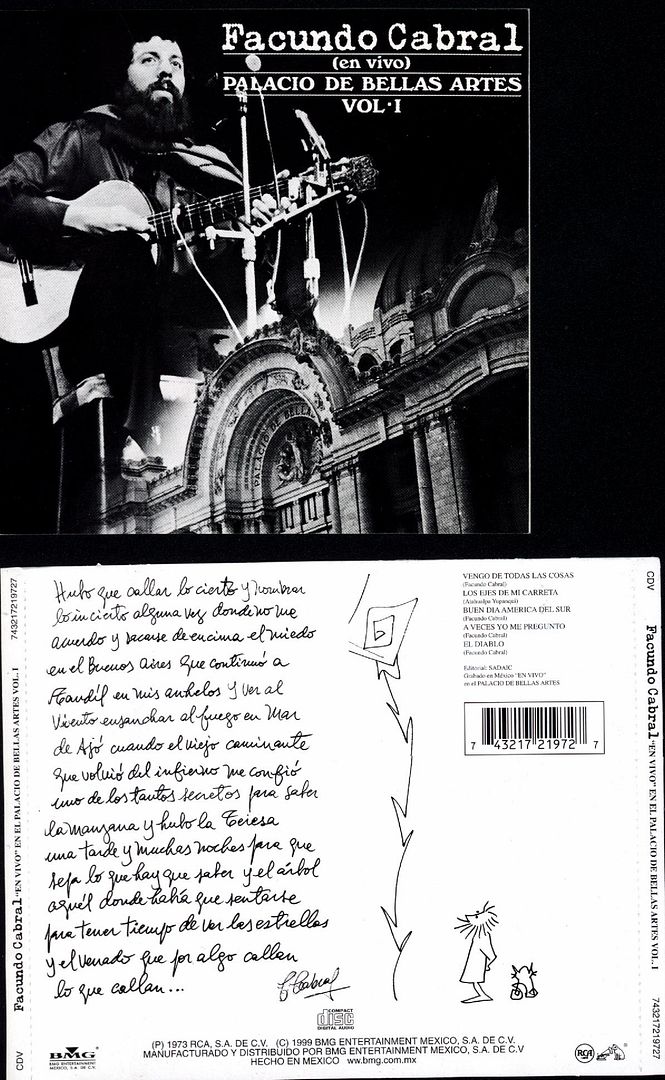 Facundo Cabral
(en vivo)
PALACIO DE BELLAS ARTES
VOL·I
PALACIO DE BELLAS ARTES
743217219727
Facundo Cabral "EN VIVO" EN EL PALACIO DE BELLAS ARTES VOL. I
CDV
Hubo que callar lo cierto y nombrar
lo incierto alguna vez donde no me
acuerdo y sacarse de encima el miedo
en el Buenos Aires que continuó a
Tandil en mis anhelos y ver al
viento ensanchar al fuego en Mar
de Ajó cuando el viejo caminante
que volvió del infierno me confió
uno de los tantos secretos para saber
la manzana y hubo la Teresa
una tarde y muchas noches para que
sepa lo que hay que saber y el árbol
aquél donde había que sentarse
para tener tiempo de ver las estrellas
y el venado que por algo callan
lo que callan...
F Cabral
VENGO DE TODAS LAS COSAS
(Facundo Cabral)
LOS EJES DE MI CARRETA
(Atahualpa Yupanqui)
BUEN DIA AMERICA DEL SUR
(Facundo Cabral)
A VECES YO ME PREGUNTO
(Facundo Cabral)
EL DIABLO
(Facundo Cabral)
Editorial: SADAIC
Grabado en México "EN VIVO"
en el PALACIO DE BELLAS ARTES
7 43217 21972 7
CDV
Facundo Cabral "EN VIVO" EN EL PALACIO DE BELLAS ARTES VOL. I
743217219727
COMPACT
disc
DIGITAL AUDIO
BMG
BMG ENTERTAINMENT
MEXICO, S.A. DE C.V.
(P) 1973 RCA, S.A. DE C.V. (C) 1999 BMG ENTERTAINMENT MEXICO, S.A. DE C.V.
MANUFACTURADO Y DISTRIBUIDO POR BMG ENTERTAINMENT MEXICO, S.A. DE C.V
HECHO EN MEXICO ww.bmg.com.mx
RCA